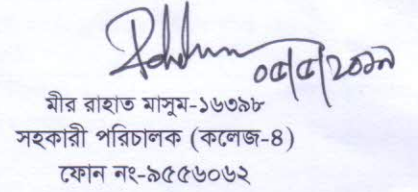 ০৫/৫/২০১৯
মীর রাহাত মাসুম-১৬৩৯৮
সহকারী পরিচালক (কলেজ-৪)
ফোন নং-৯৫৫৬০৬২